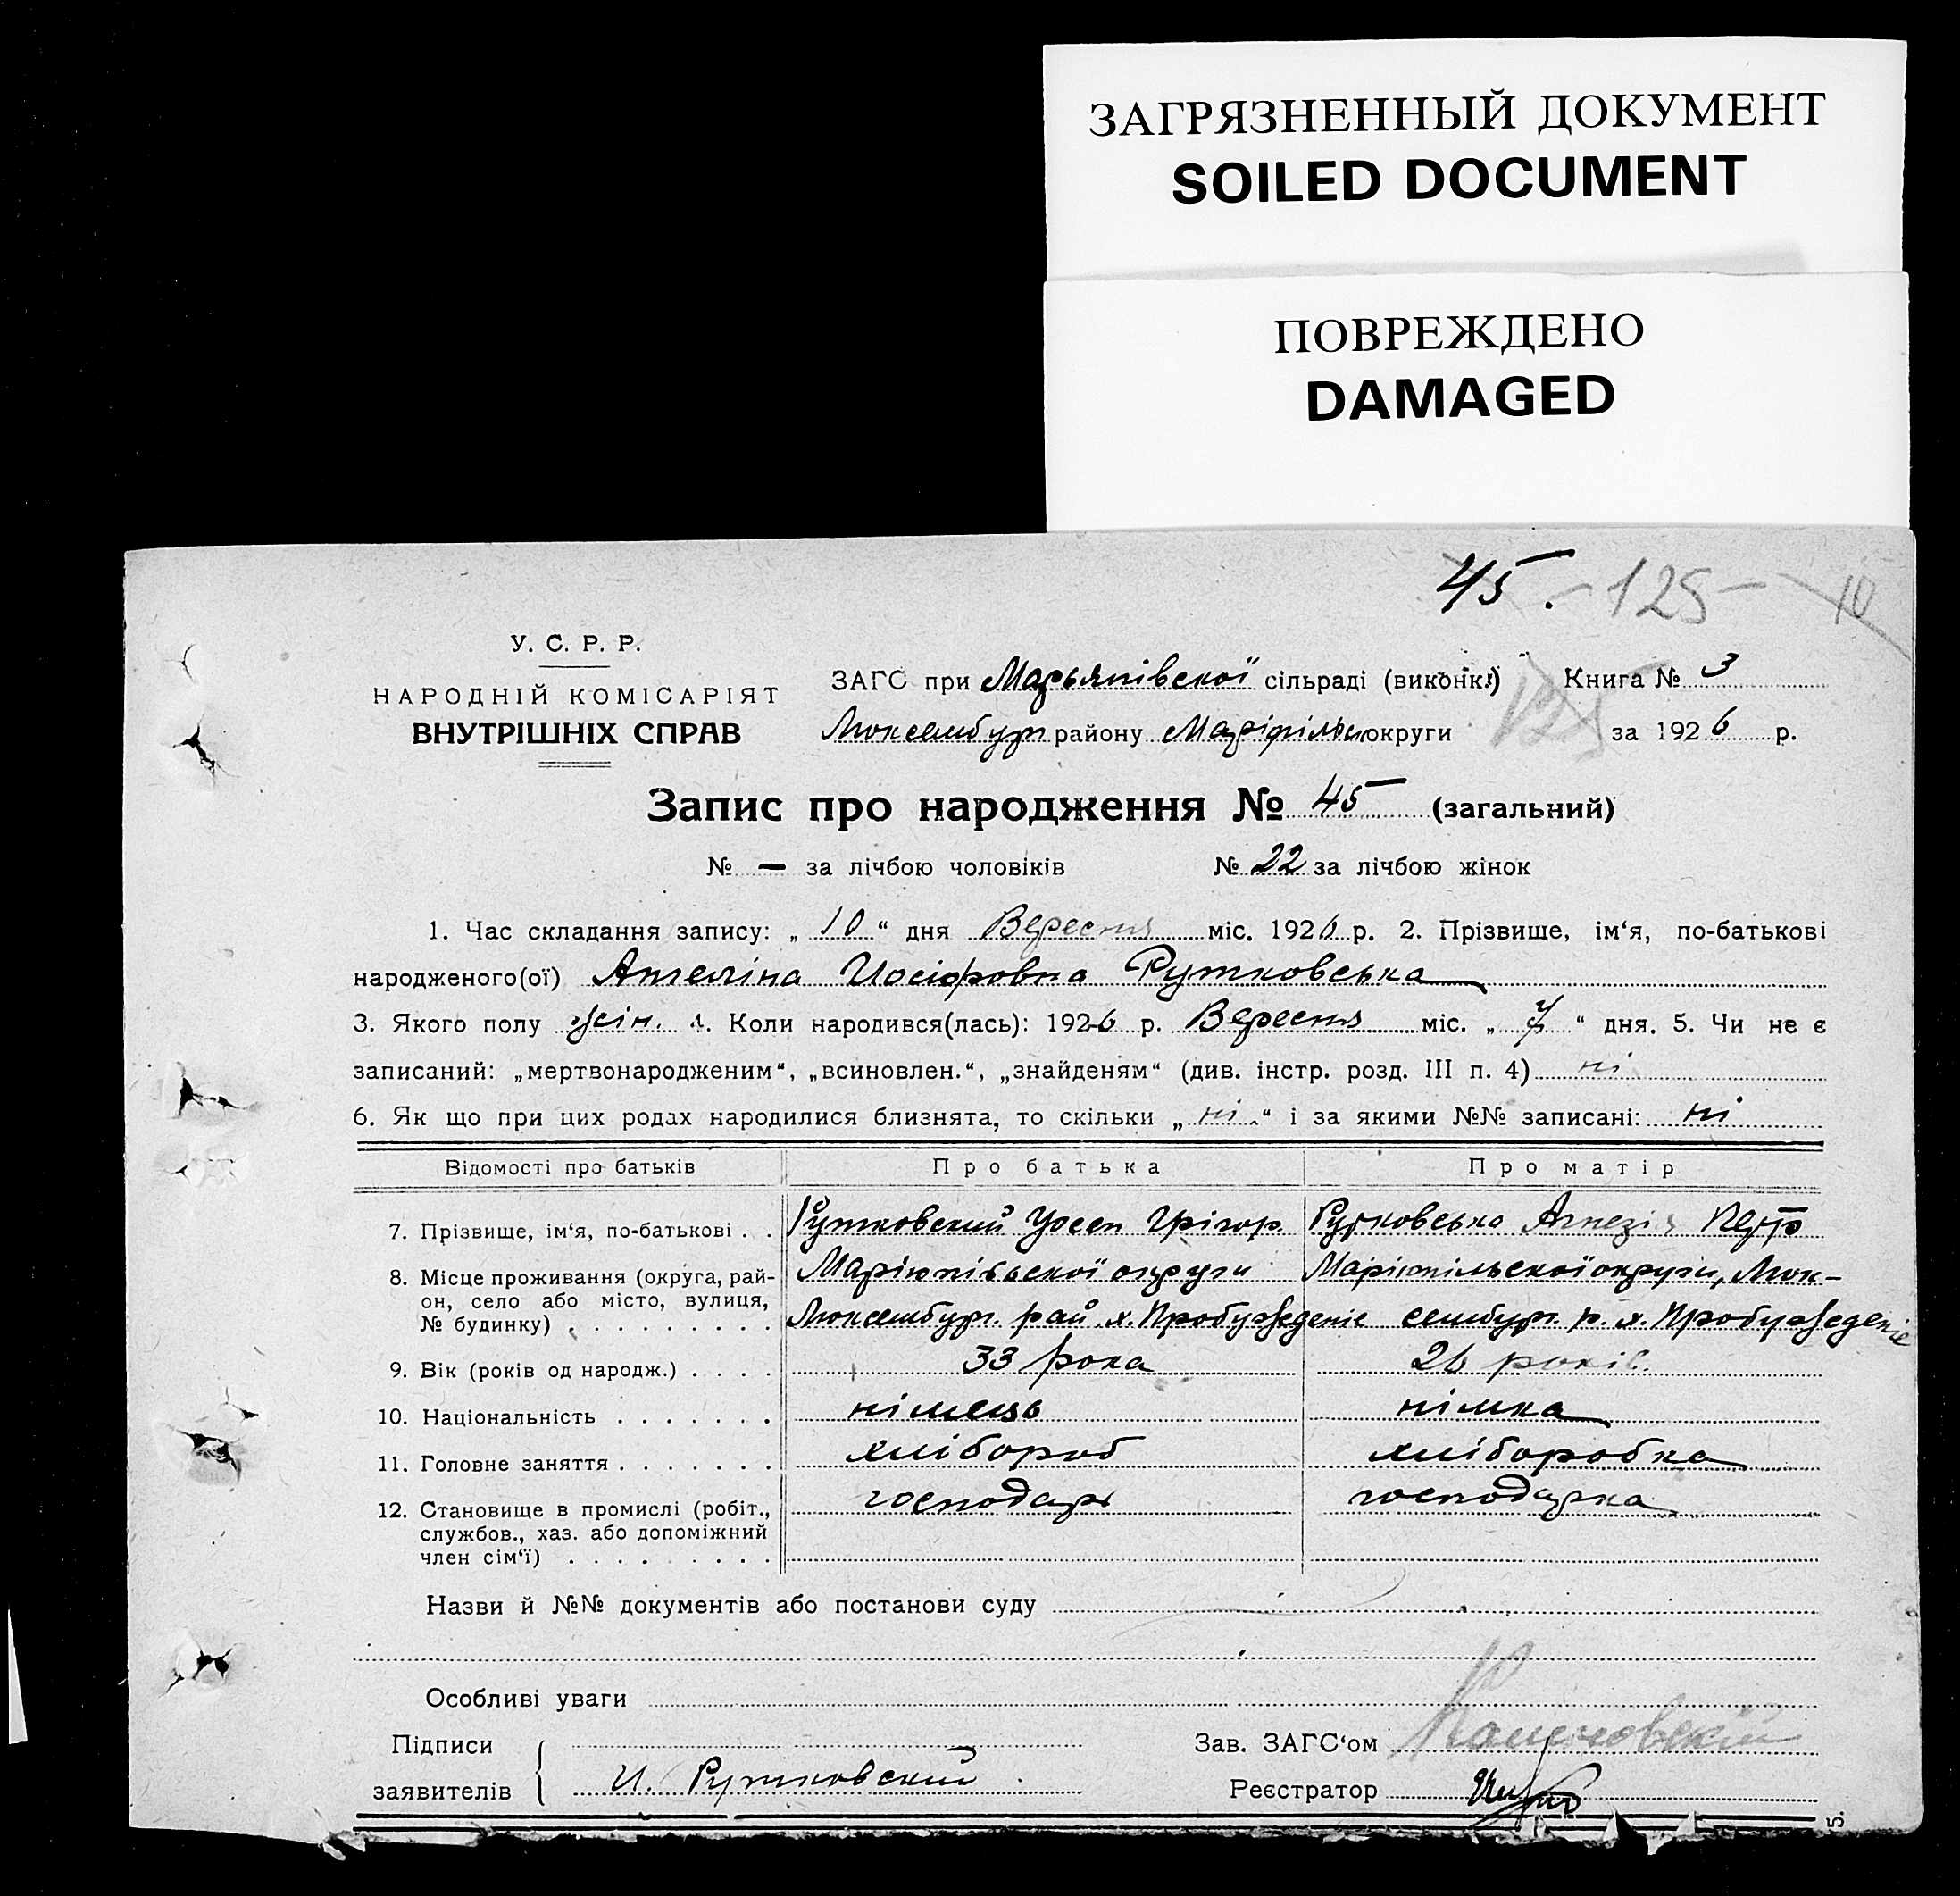 ЗАГРЯЗНЕННЫЙ ДОКУМЕНТ
SOILED DOCUMENT
ПОВРЕЖДЕНО
DAMAGED
45. -125- 10
У. С. Р. Р.
НАРОДНІЙ КОМІСАРІЯТ
ВНУТРІШНІХ СПРАВ
ЗАГС при Марьяпівской сільраді (виконк.) Книга № 3
Люксембург району округи за 1926 р.
Запис про народження № 45 (загальний)
№ — за лічбою чоловіків № 22 за лічбою жінок
1. Час складання запису: „ 10 “ дня Вересня міс. 1926 р. 2. Прізвище, ім‘я, по-батькові
народженого(ої) Ангеліна Иосіфовна Рутковська
3. Якого полу жін. 4. Коли народився(лась): 1926 р. Вересня міс. „ 7 “ дня. 5. Чи не є
записаний: „мертвонародженим“, „всиновлен.“, „знайденям“ (див. інстр. розд. III п. 4) ні
6. Як що при цих родах народилися близнята, то скільки „ ні “ і за якими №№ записані: ні
Відомості про батьків Про батька Про матір
7. Прізвище, ім‘я, по-батькові . . Рутковский Иосеп Грігор. Рутковська Агнезія Петр
8. Місце проживання (округа, рай-он, село або місто, вулиця, № будинку) . . . . . . . . . Маріюпільскої округи Маріюпільскої округи, Люк-
Люксембург. рай. х. Пробужденіе сембург. р. х. Пробужденіе
9. Вік (років од народж.) . . . . 33 рока 26 років.
10. Національність . . . . . . . німець німка
11. Головне заняття . . . . . . . хлібороб хліборобка
12. Становище в промислі (робіт., службов., хаз. або допоміжний член сім‘ї) . . . . . . . . . господарь господарка
Назви й №№ документів або постанови суду
Особливі уваги
Підписи заявителів И. Рутковский
Зав. ЗАГС‘ом
Реєстратор
5.